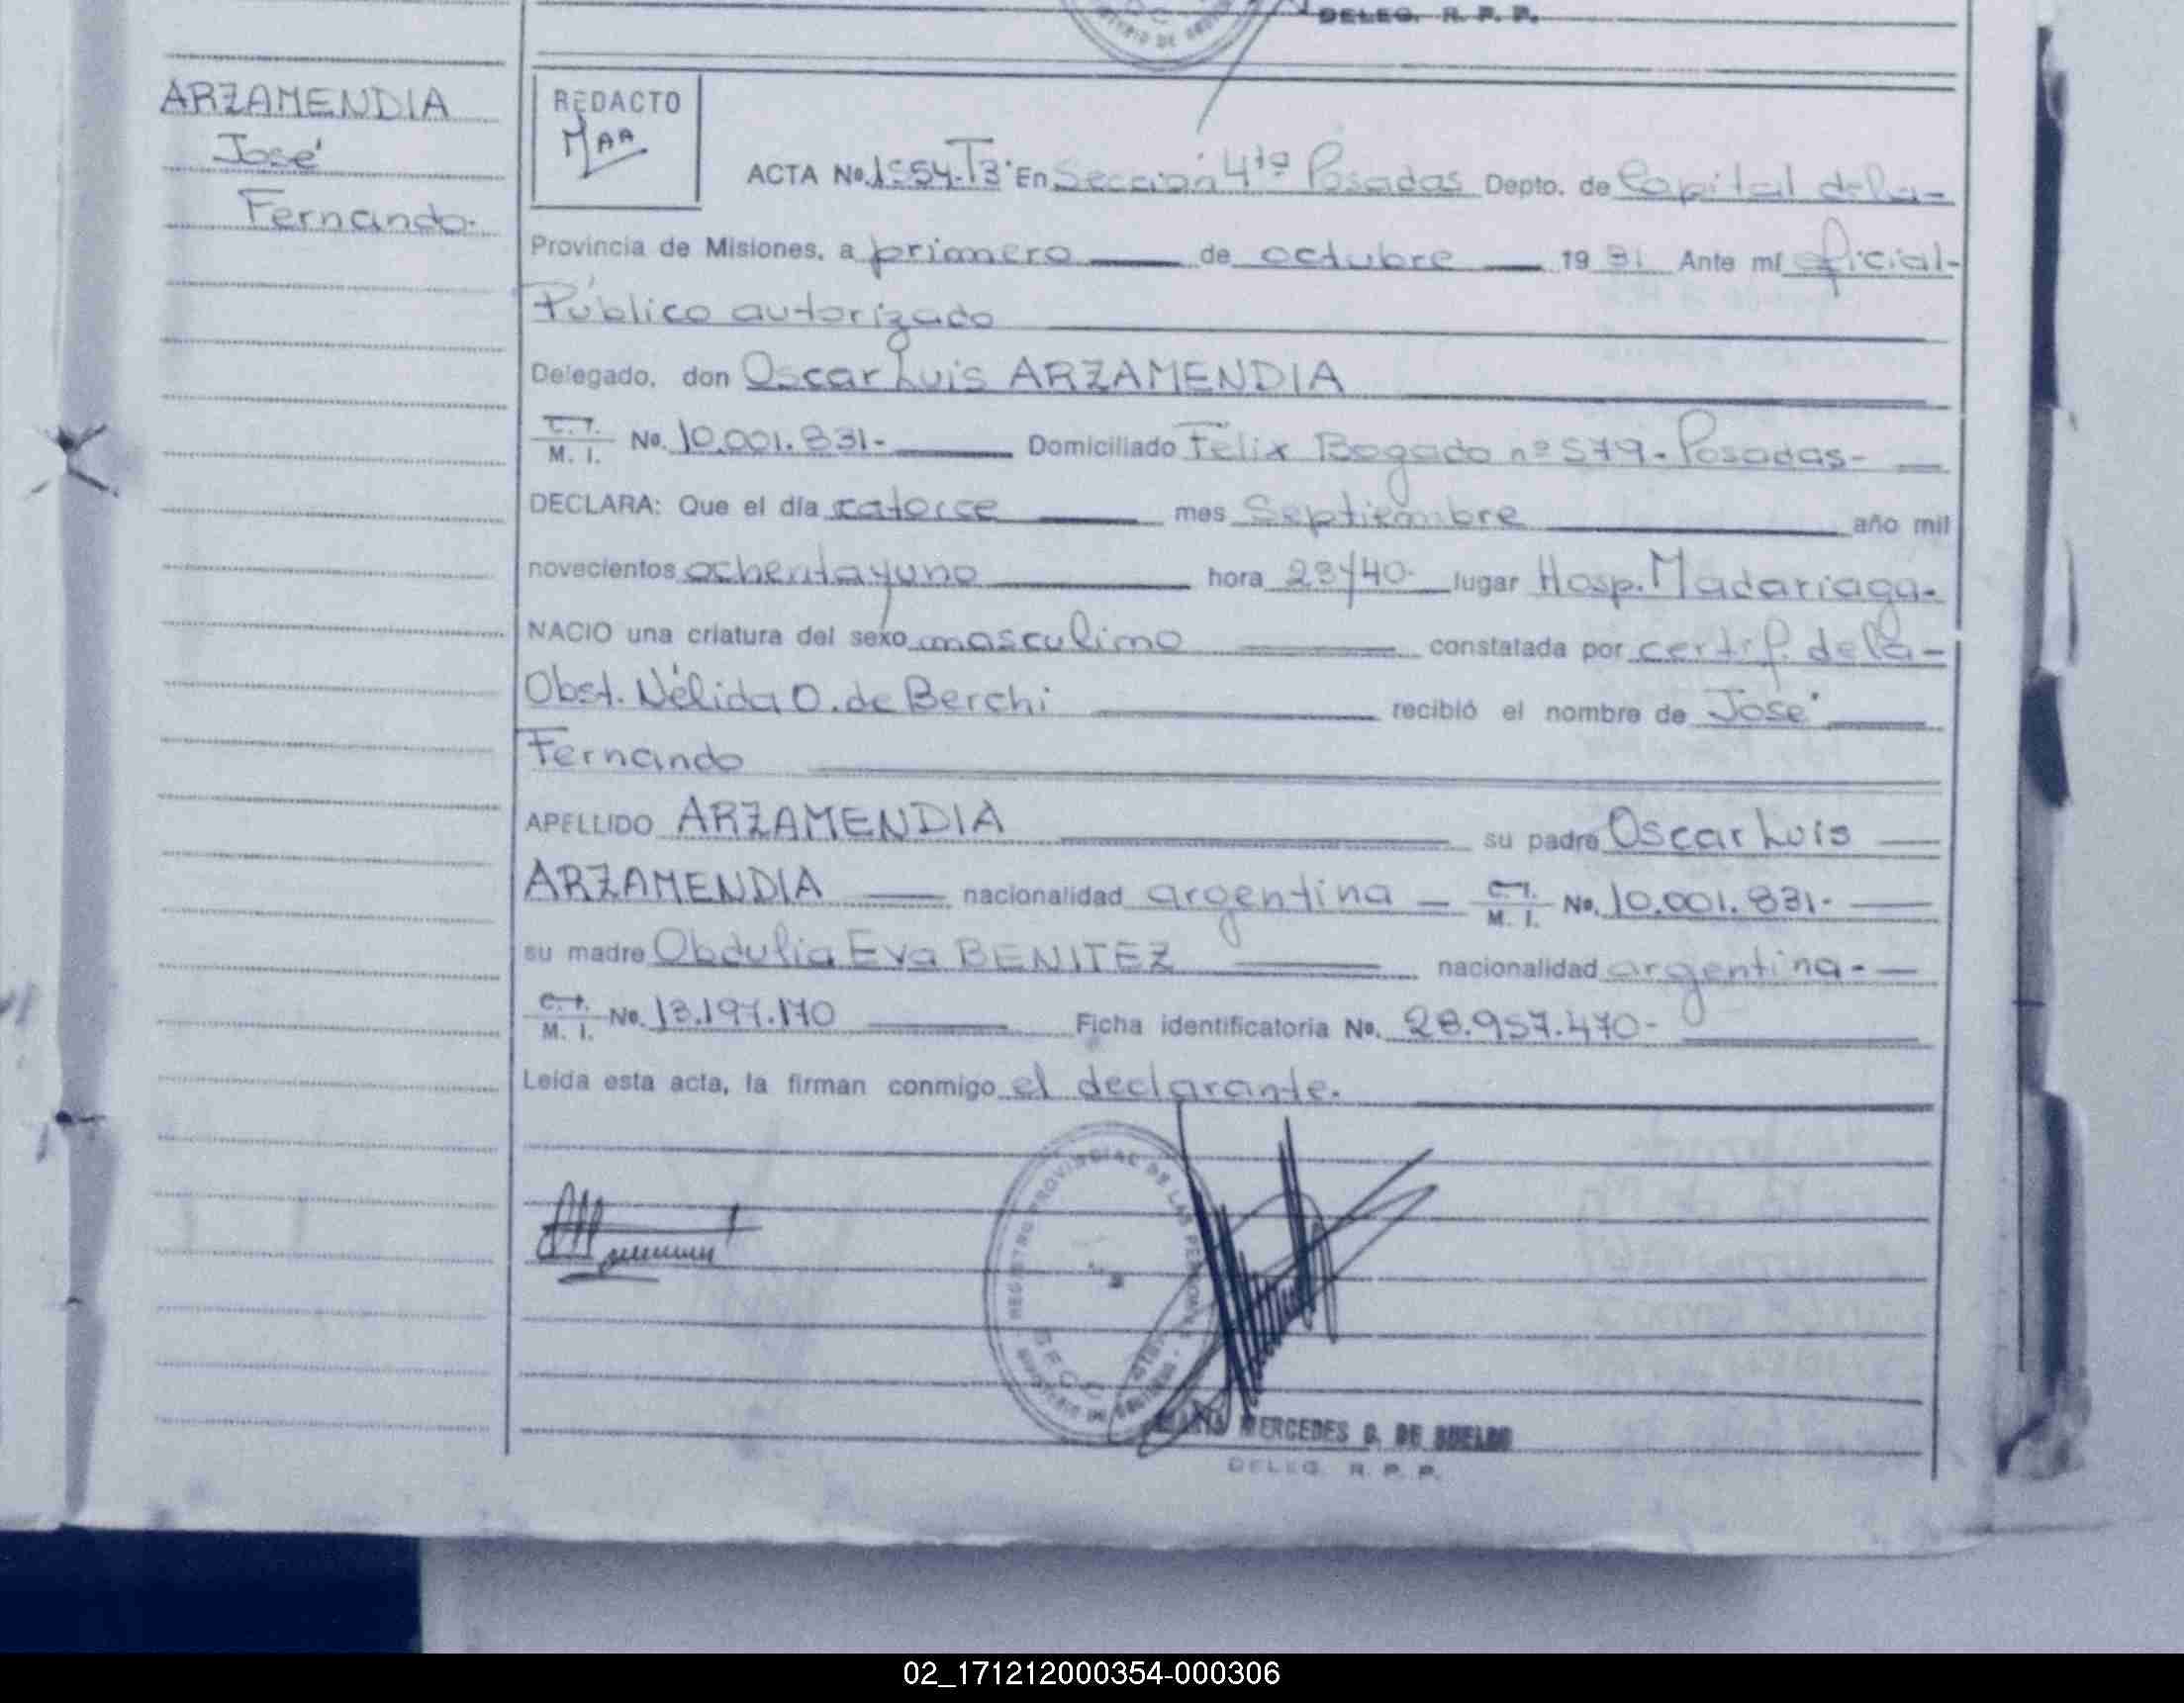 DELEG. R. P. P.
ARZAMENDIA
José
Fernando.
REDACTO
MAA
ACTA No. 1554-T3· En Sección 4ta Posadas Depto. de Capital de la-
Provincia de Misiones, a primero de octubre 19 81 Ante mí oficial-
Público autorizado
Delegado, don Oscar Luis ARZAMENDIA
C. I.
M. I. No. 10.001.831- Domiciliado Félix Bogado nº 579.- Posadas-
DECLARA: Que el día catorce mes Septiembre año mil
novecientos ochenta y uno hora 23/40· lugar Hosp. Madariaga-
NACIO una criatura del sexo masculino constatada por certif. de la-
Obst. Nélida O. de Berchi recibió el nombre de José
Fernando
APELLIDO ARZAMENDIA su padre Oscar Luis
ARZAMENDIA nacionalidad argentina C. I.
M. I. No. 10.001.831-
su madre Obdulia Eva BENITEZ nacionalidad argentina-
C. I.
M. I. No. 13.197.170 Ficha identificatoria No. 28.957.470-
Leída esta acta, la firman conmigo el declarante.
REGISTRO PROVINCIAL DE LAS PERSONAS
MERCEDES G. DE
DELEG. R. P. P.
02_171212000354-000306